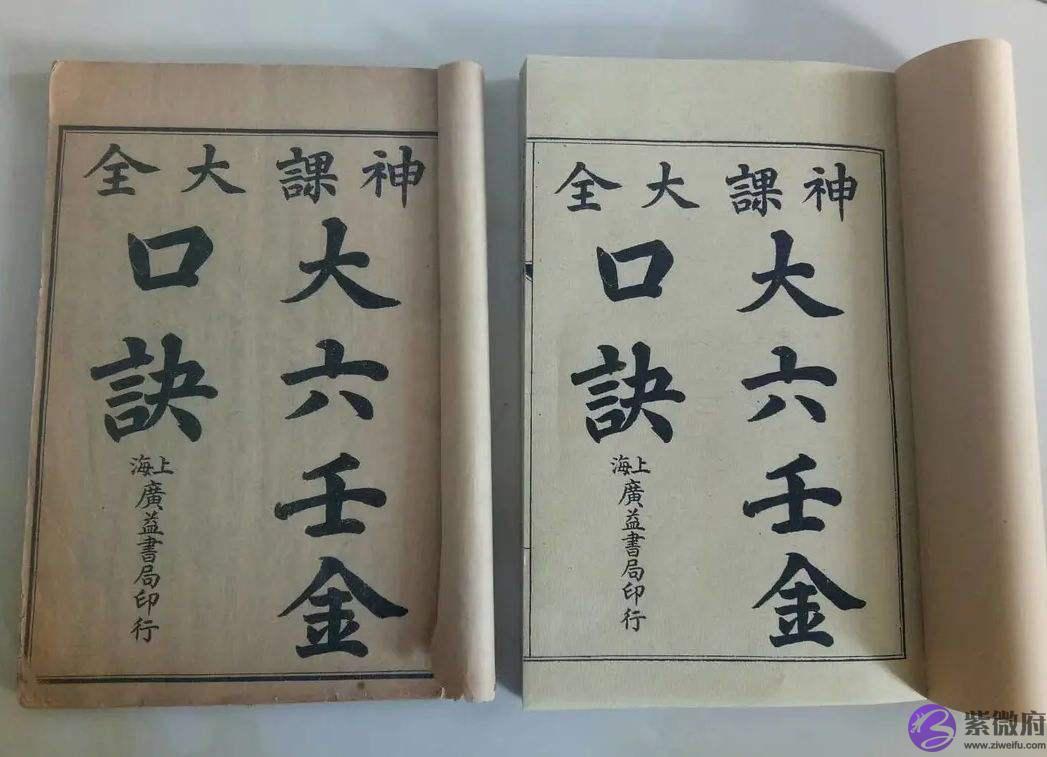 神課大全
大六壬金
口訣
上海
廣益書局印行
神課大全
大六壬金
口訣
上海
廣益書局印行
紫微府
www.ziweifu.com